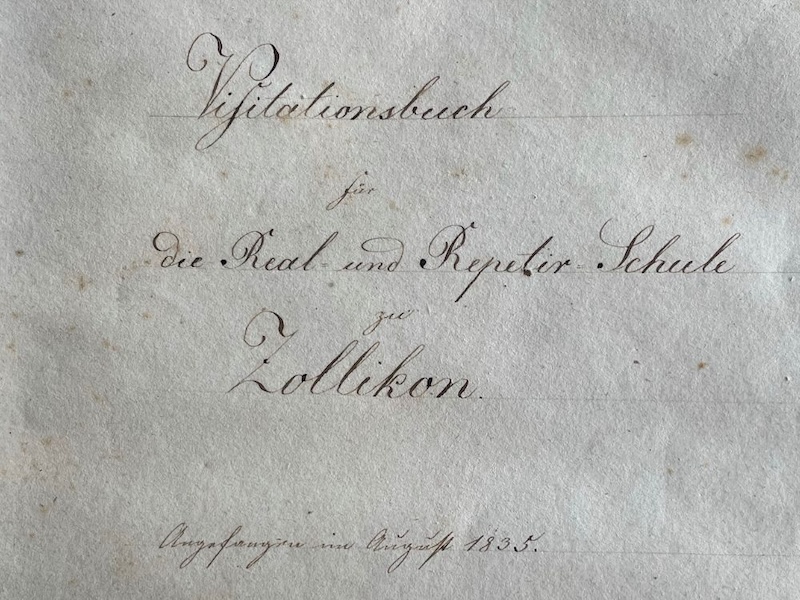 Visitationsbuch
für
die Real- und Repetir-Schule
zu
Zollikon.
Angefangen im August 1835.